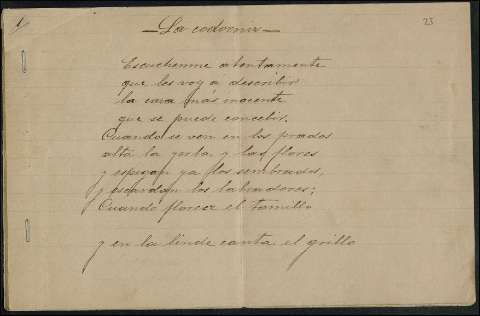 1
23
—La codorniz—
Escuchenme atentamente
que les voy a describir
la caza más inocente
que se puede concebir.
Cuando se ven en los prados
alta la yerba y las flores
y espigan ya los sembrados,
y escardan los labradores;
Cuando florece el tomillo
y en la linde canta el grillo